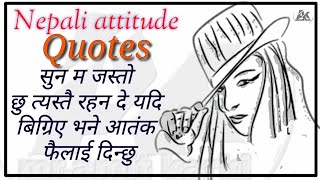 Nepali attitude
Quotes
सुन म जस्तो
छु त्यस्तै रहन दे यदि
बिग्रिए भने आतंक
फैलाई दिन्छु